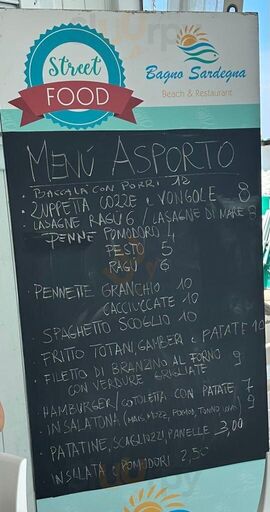 Street
FOOD
Bagno Sardegna
Beach & Restaurant
MENÚ ASPORTO
• BACCALÀ CON PORRI 12
• ZUPPETTA COZZE E VONGOLE 8
• LASAGNE RAGÙ 6 / LASAGNE DI MARE 8
• PENNE POMODORO 4
PESTO 5
RAGÙ 6
• PENNETTE GRANCHIO 10
CACIUCCATE 10
• SPAGHETTO SCOGLIO 10
• FRITTO TOTANI, GAMBERI E PATATE 10
• FILETTO DI BRANZINO AL FORNO 9
CON VERDURE GRIGLIATE
• HAMBURGER / COTOLETTA CON PATATE 7
• INSALATONA (MAIS, MOZZ, POMOD, TONNO, UOVO) 9
• PATATINE, SCAGLIOZZI, PANELLE 3,00
• INSALATA E POMODORI 2,50